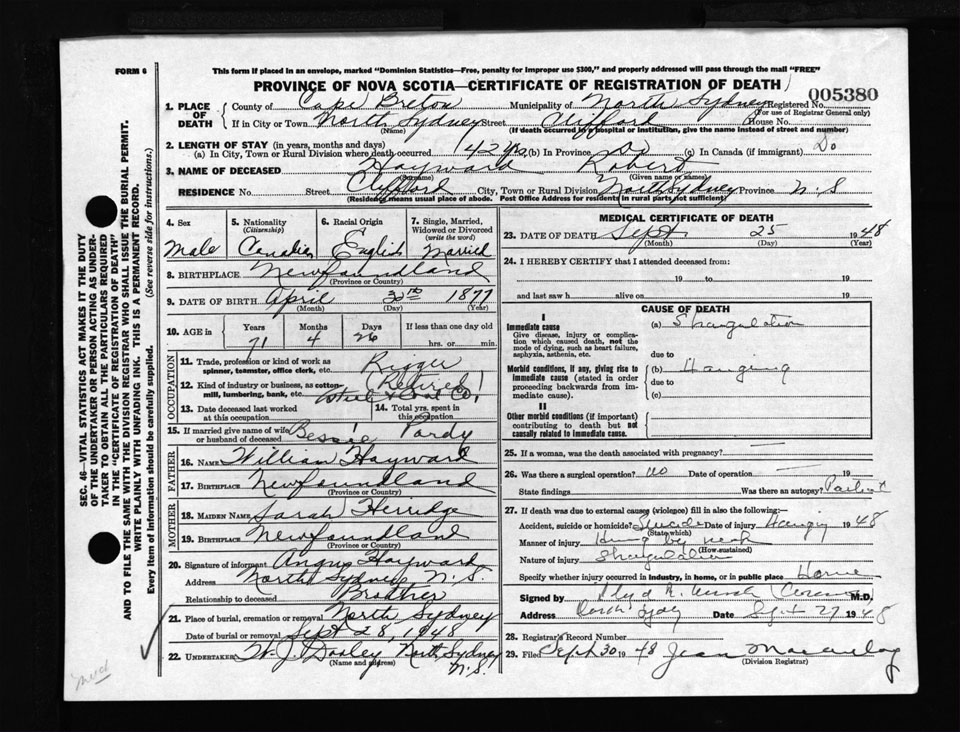 FORM 6
This form if placed in an envelope, marked "Dominion Statistics—Free, penalty for improper use $300," and properly addressed will pass through the mail "FREE"
PROVINCE OF NOVA SCOTIA—CERTIFICATE OF REGISTRATION OF DEATH
005380
1. PLACE OF DEATH
County of Cape Breton Municipality of North Sydney Registered No.
(For use of Registrar General only)
If in City or Town North Sydney Street Clifford House No.
(Name) (If death occurred in a hospital or institution, give the name instead of street and number)
2. LENGTH OF STAY (in years, months and days)
(a) In City, Town or Rural Division where death occurred 42 yrs (b) In Province Do (c) In Canada (if immigrant) Do
3. NAME OF DECEASED Hayward Robert
(Surname) (Given name or names)
RESIDENCE No. Street Clifford City, Town or Rural Division North Sydney Province N.S
(Residence means usual place of abode. Post Office Address for residents in rural parts not sufficient)
4. Sex Male
5. Nationality (Citizenship) Canadian
6. Racial Origin English
7. Single, Married, Widowed or Divorced (write the word) Married
8. BIRTHPLACE Newfoundland
(Province or Country)
9. DATE OF BIRTH April 30th 1877
(Month) (Day) (Year)
10. AGE in Years Months Days If less than one day old
71 4 26 hrs. or min.
OCCUPATION
11. Trade, profession or kind of work as spinner, teamster, office clerk, etc. Rigger
12. Kind of industry or business, as cotton-mill, lumbering, bank, etc. (Retired) Steel & Coal Co.
13. Date deceased last worked at this occupation
14. Total yrs. spent in this occupation
15. If married give name of wife or husband of deceased Bessie Pardy
FATHER
16. NAME William Hayward
17. BIRTHPLACE Newfoundland
(Province or Country)
MOTHER
18. MAIDEN NAME Sarah Herridge
19. BIRTHPLACE Newfoundland
(Province or Country)
20. Signature of informant Angus Hayward
Address North Sydney N.S.
Relationship to deceased Brother
21. Place of burial, cremation or removal North Sydney
Date of burial or removal Sept 28, 1948
22. UNDERTAKER W. J. Dooley North Sydney
(Name and address) N.S.
MEDICAL CERTIFICATE OF DEATH
23. DATE OF DEATH Sept. 25 1948
(Month) (Day) (Year)
24. I HEREBY CERTIFY that I attended deceased from:
19 to 19
and last saw h alive on 19
CAUSE OF DEATH
I
Immediate cause
Give disease, injury or complication which caused death, not the mode of dying, such as heart failure, asphyxia, asthenia, etc.
(a) Strangulation
due to
Morbid conditions, if any, giving rise to immediate cause (stated in order proceeding backwards from immediate cause).
(b) Hanging
due to
(c)
II
Other morbid conditions (if important) contributing to death but not causally related to immediate cause.
25. If a woman, was the death associated with pregnancy?
26. Was there a surgical operation? no Date of operation — 19
State findings Was there an autopsy?
27. If death was due to external causes (violence) fill in also the following:
Accident, suicide or homicide? Suicide Date of injury Hanging 1948
(State which)
Manner of injury Hung by neck
(How sustained)
Nature of injury Strangulation
Specify whether injury occurred in industry, in home, or in public place Home
Signed by Coroner M.D.
Address North Sydney Date Sept 27 1948
28. Registrar's Record Number
29. Filed Sept 30 1948 Jean Macaulay
(Division Registrar)
SEC. 46—VITAL STATISTICS ACT MAKES IT THE DUTY
OF THE UNDERTAKER OR PERSON ACTING AS UNDER-
TAKER TO OBTAIN ALL THE PARTICULARS REQUIRED
IN THE "CERTIFICATE OF REGISTRATION OF DEATH"
AND TO FILE THE SAME WITH THE DIVISION REGISTRAR WHO SHALL ISSUE THE BURIAL PERMIT.
WRITE PLAINLY WITH UNFADING INK. THIS IS A PERMANENT RECORD.
Every item of information should be carefully supplied. (See reverse side for instructions.)